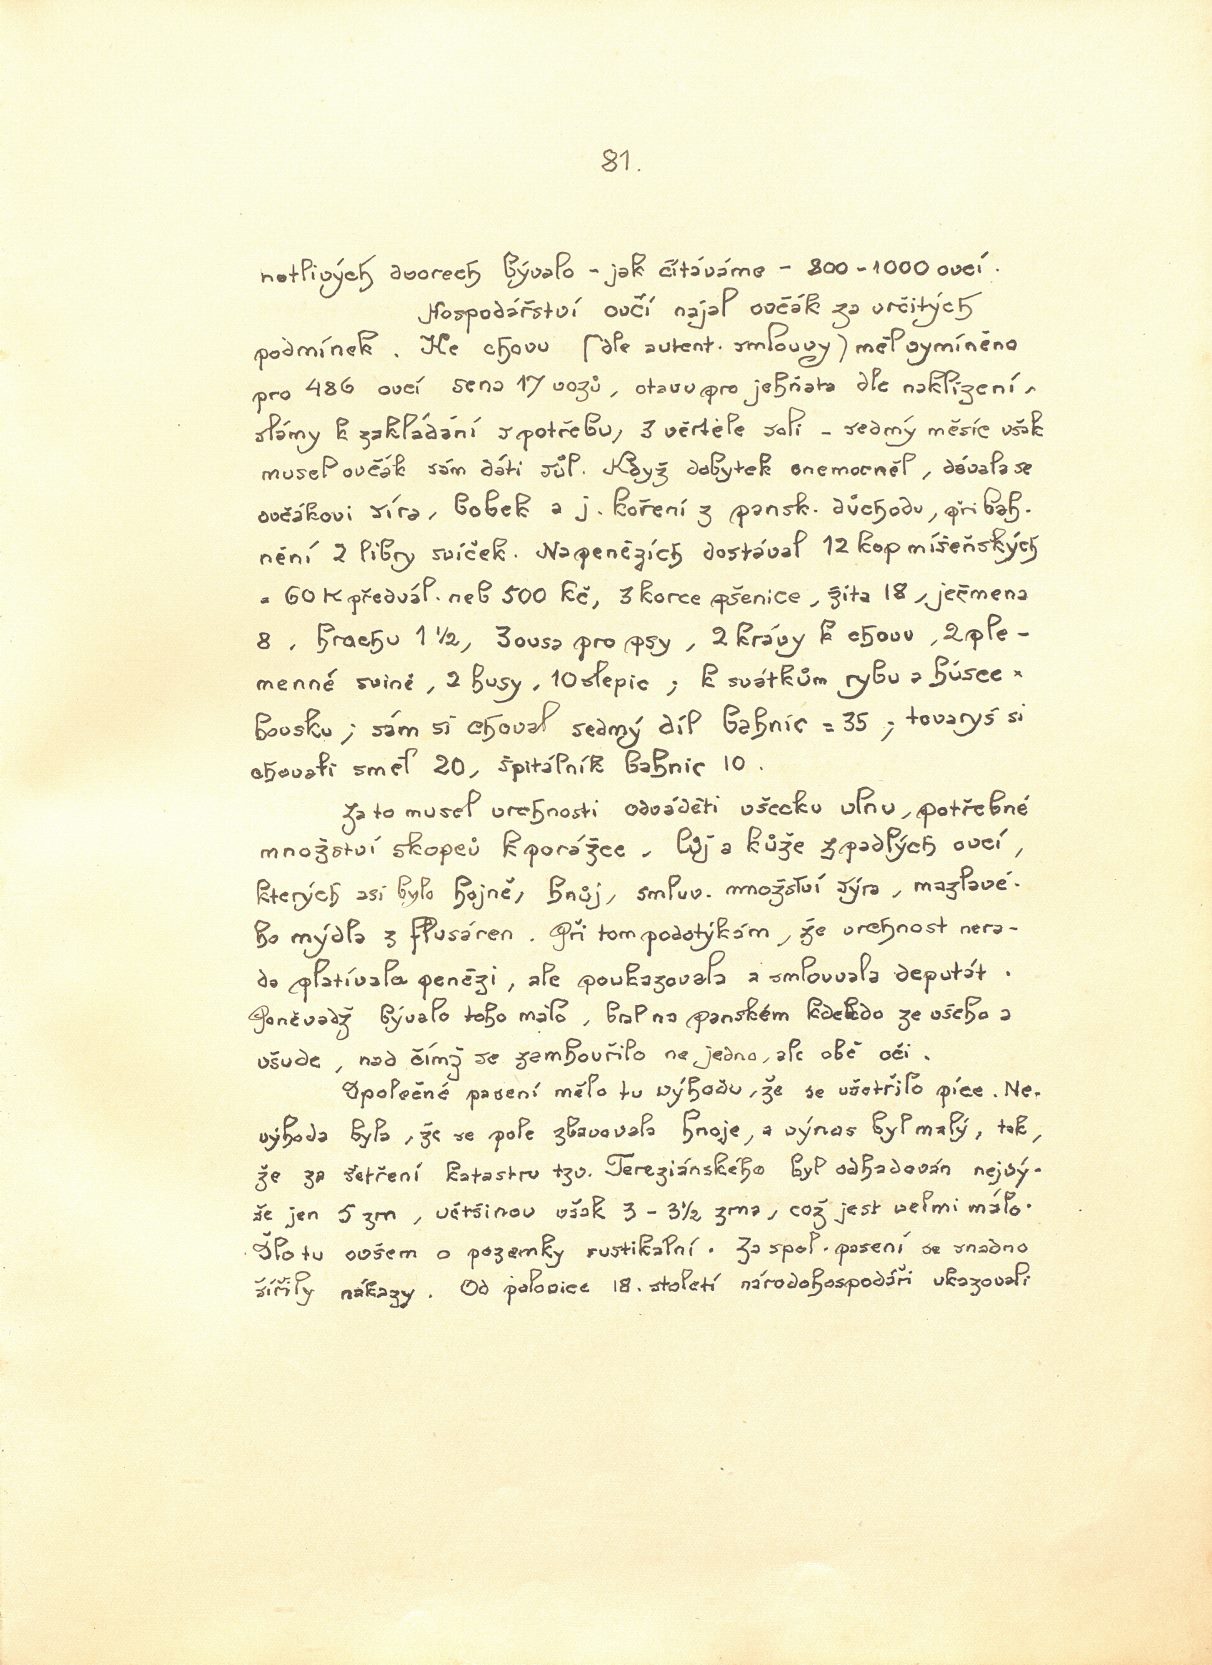 81.
notlivých dvorech bývalo - jak čítáváme - 800 - 1000 ovcí.
Hospodářství ovčí najal ovčák za určitých
podmínek. Ke chovu (dle autent. smlouvy) měl vymíněno
pro 486 ovcí sena 17 vozů, otavu pro jehňata dle naklízení,
slámy k zakládání s potřebu, 3 věrtele soli - sedmý měsíc však
musel ovčák sám dáti sůl. Když dobytek onemocněl, dávala se
ovčákovi síra, bobek a j. koření z pansk. důchodu, při bah-
nění 2 libry svíček. Na penězích dostával 12 kop míšeňských
= 60 K předvál. neb 500 Kč, 3 korce pšenice, žita 18, ječmena
8, hrachu 1 ½, 3 ovsa pro psy, 2 krávy k chovu, 2 ple-
menné svině, 2 husy, 10 slepic; k svátkům rybu a húsce
housku; sám si choval sedmý díl bahnic = 35; tovaryš si
chovati směl 20, špitálník bahnic 10.
Za to musel vrchnosti odváděti všecku vlnu, potřebné
množství skopců k porážce, lůj a kůže z padlých ovcí,
kterých asi bylo hojně, hnůj, smluv. množství sýra, mazlavé-
ho mýdla z flusáren. Při tom podotýkám, že vrchnost nera-
da platívala penězi, ale poukazovala a smlouvala deputát.
Poněvadž bývalo toho málo, bral na panském kdekdo ze všeho a
všude, nad čímž se zamhouřilo ne jedno, ale obě oči.
Společné pasení mělo tu výhodu, že se ušetřilo píce. Ne-
výhoda byla, že se pole zbavovala hnoje, a výnos byl malý, tak,
že za šetření katastru tzv. Tereziánského byl odhadován nejvý-
še jen 5 zrn, většinou však 3 - 3½ zrna, což jest velmi málo.
Šlo tu ovšem o pozemky rustikální. Za spol. pasení se snadno
šířily nákazy. Od polovice 18. století národohospodáři ukazovali